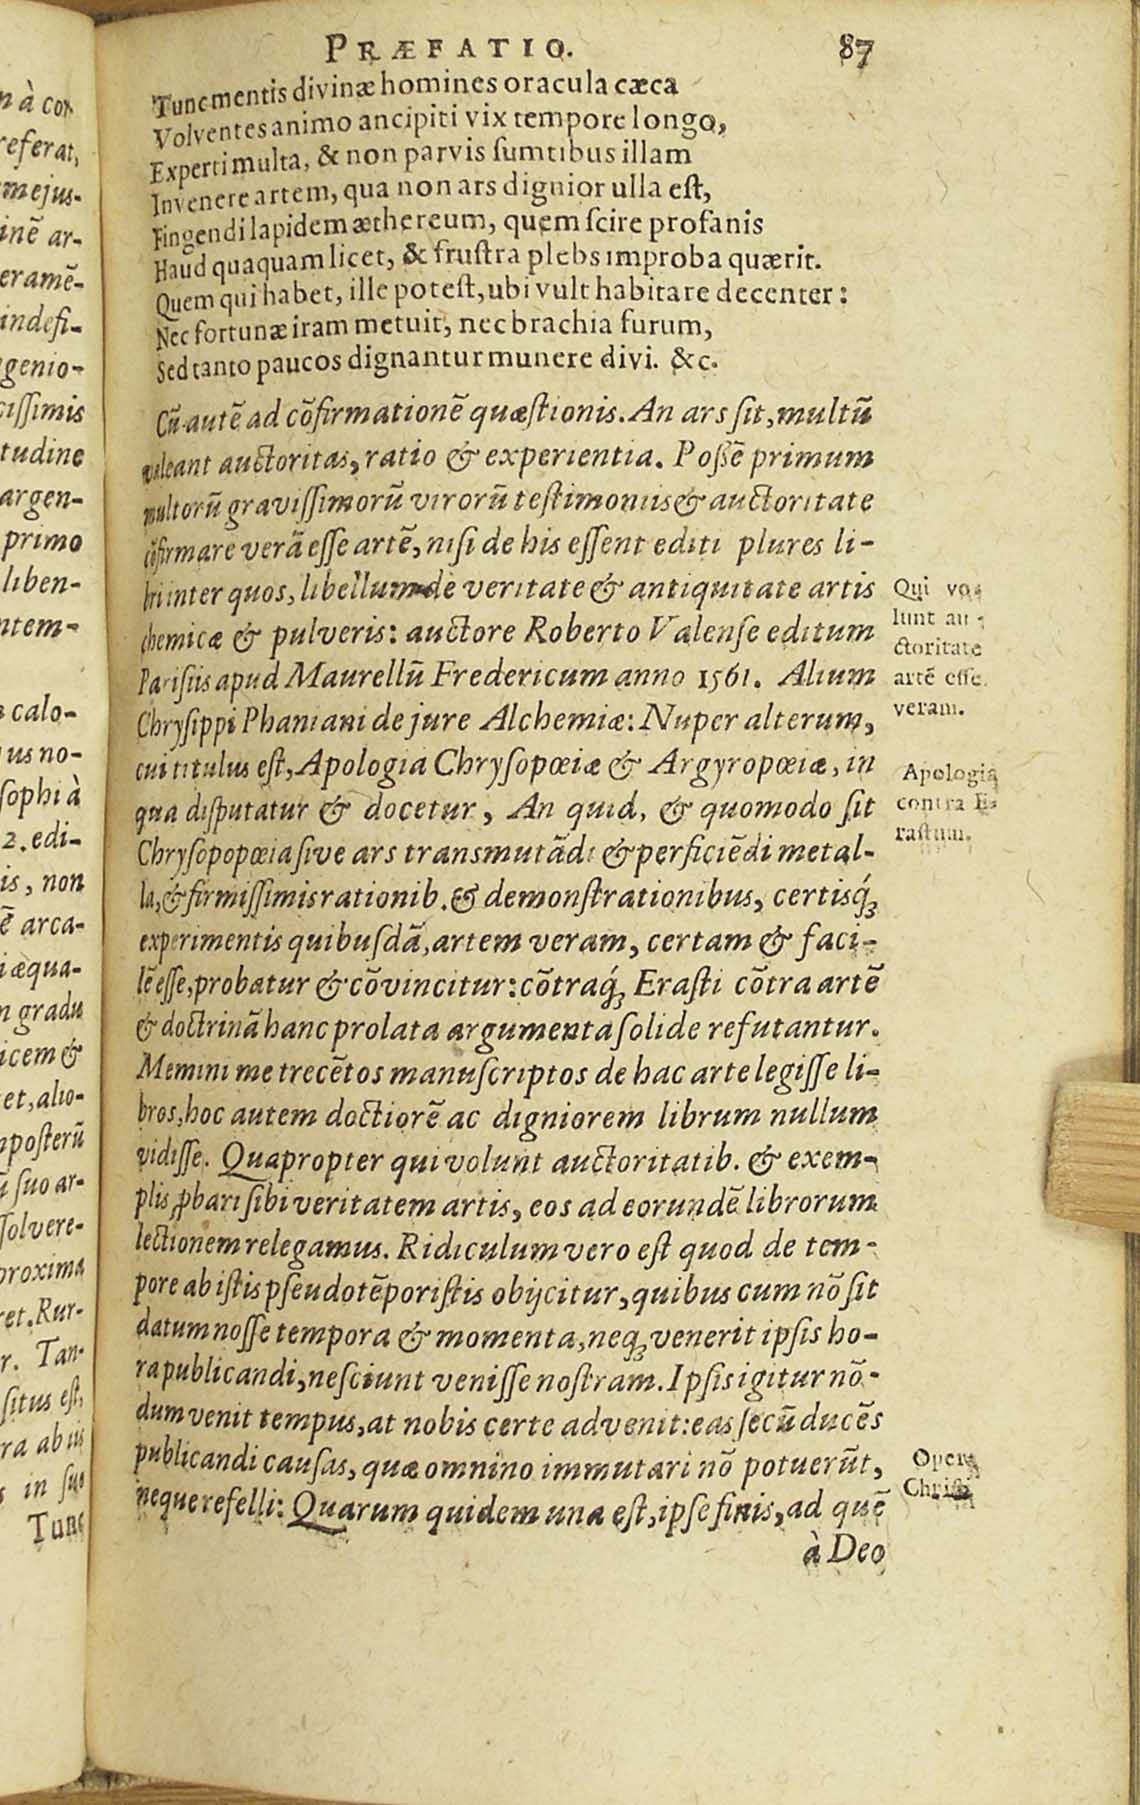 PRÆFATIO. 87
Tunc mentis divinæ homines oracula cæca
Volventes animo ancipiti vix tempore longo,
Experti multa, & non parvis sumtibus illam
Invenere artem, qua non ars dignior ulla est,
Fingendi lapidem æthereum, quem scire profanis
Haud quaquam licet, & frustra plebs improba quærit.
Quem qui habet, ille potest, ubi vult habitare decenter:
Nec fortunæ iram metuit, nec brachia furum,
Sed tanto paucos dignantur munere divi. &c.
Cũ autẽ ad cõfirmationẽ quæstionis. An ars sit, multũ
valeant auctoritas, ratio & experientia. Possẽ primum
multorũ gravissimorũ virorũ testimoniis & auctoritate
cõfirmare verã esse artẽ, nisi de his essent editi plures li-
bri inter quos, libellum de veritate & antiquitate artis
chemicæ & pulveris: auctore Roberto Valense editum
Parisiis apud Maurellũ Fredericum anno 1561. Alium
Chrysippi Phaniani de jure Alchemiæ: Nuper alterum,
cui titulus est, Apologia Chrysopœiæ & Argyropœiæ, in
qua disputatur & docetur, An quid, & quomodo sit
Chrysopopœia sive ars transmutãdi & perficiẽdi metal-
la, & firmissimis rationib. & demonstrationibus, certisq́ꝫ
experimentis quibusdã, artem veram, certam & faci-
lẽ esse, probatur & cõvincitur: cõtraq́ꝫ Erasti cõtra artẽ
& doctrinã hanc prolata argumenta solide refutantur.
Memini me trecẽtos manuscriptos de hac arte legisse li-
bros, hoc autem doctiorẽ ac digniorem librum nullum
vidisse. Quapropter qui volunt auctoritatib. & exem-
plis ꝓbari sibi veritatem artis, eos ad eorundẽ librorum
lectionem relegamus. Ridiculum vero est quod de tem-
pore ab istis pseudotẽporistis obijcitur, quibus cum nõ sit
datum nosse tempora & momenta, neqꝫ venerit ipsis ho-
ra publicandi, nesciunt venisse nostram. Ipsis igitur nõ-
dum venit tempus, at nobis certe advenit: eas secũ ducẽs
publicandi causas, quæ omnino immutari nõ potuerũt,
neque refelli: Quarum quidem una est, ipse finis, ad quẽ
à Deo
Qui vo-
lunt au-
ctoritate
artẽ esse
veram.
Apologia
contra E-
rastum.
Opera
Christi
n à con
referat,
me jus-
inẽ ar-
eramẽ-
indefi-
genio-
cissimis
tudine
argen-
primo
liben-
ntem-
calo-
us no-
sophi à
2. edi-
is, non
ẽ arca-
i æqua-
n gradu
icem &
et, alio-
mposterũ
suo ar-
solvere-
proxima
ret. Rur-
r. Tan-
situs est,
ra ab iis
in suo
Tunc